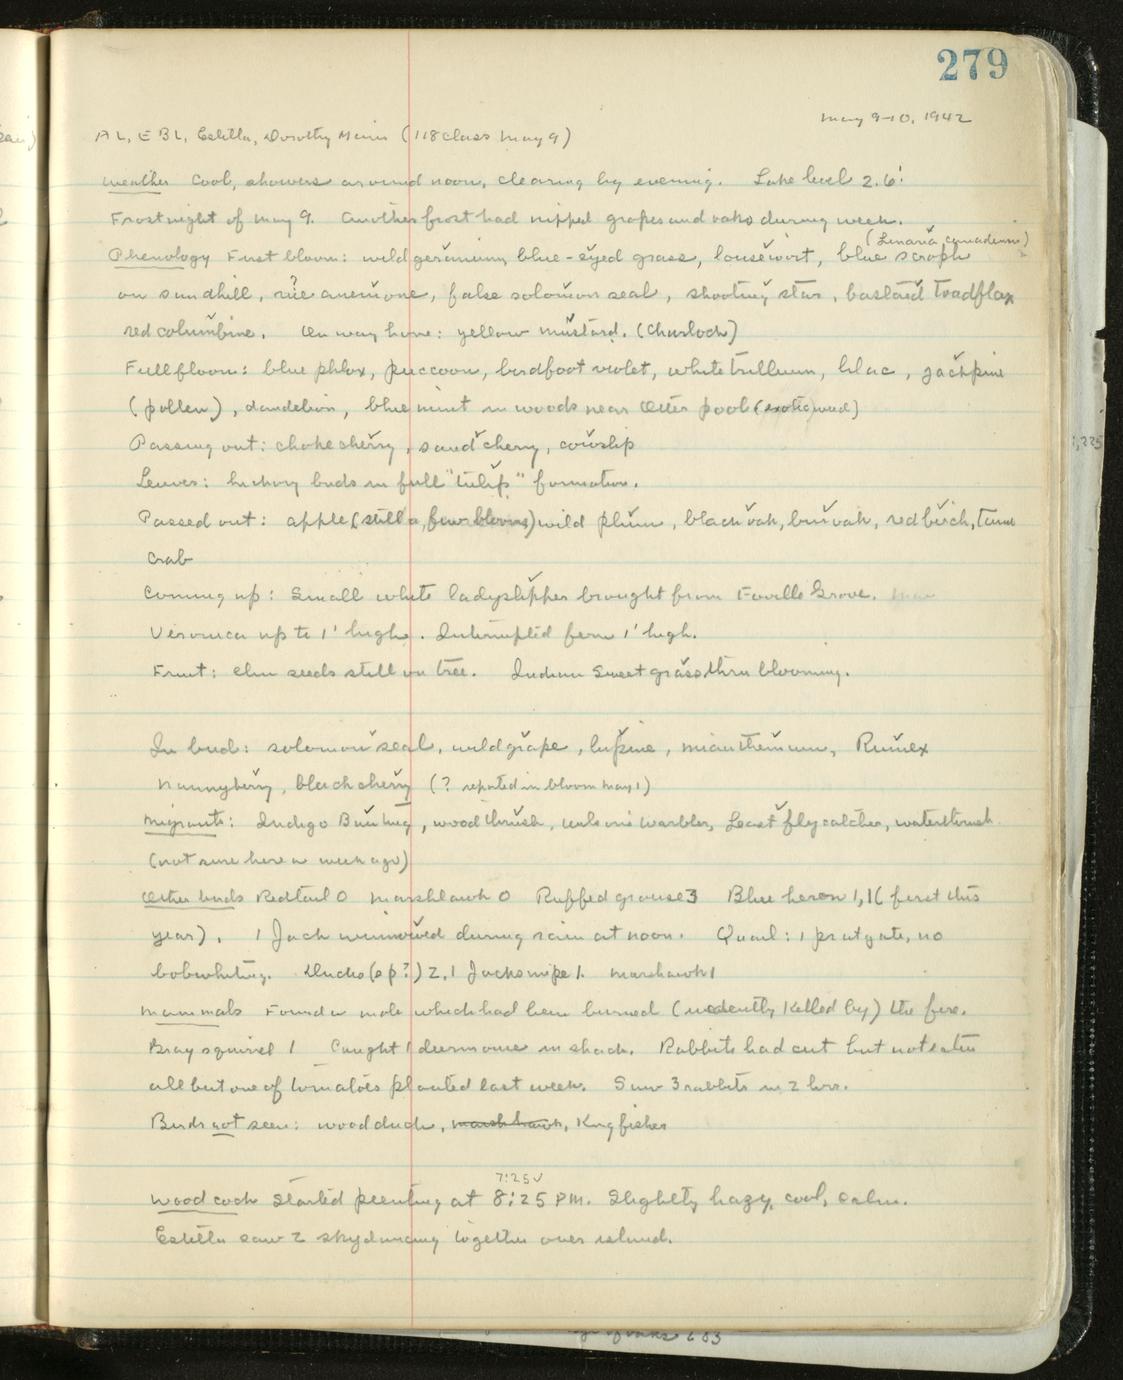 279
May 9-10, 1942
AL, EBL, Estella, Dorothy (118 class May 9)
Weather Cool, showers around noon, clearing by evening. Lake level 2.6'.
Frost night of May 9. Another frost had nipped grapes and oaks during week.
(Linaria canadensis)
Phenology First bloom: wild geranium, blue-eyed grass, lousewort, blue scroph
?
on sandhill, rue anemone, false solomon seal, shooting star, bastard toadflax
red columbine. On way home: yellow mustard. (Charlock)
Full bloom: blue phlox, puccoon, birdfoot violet, white trillium, lilac, jackpine
(pollen), dandelion, blue mint in woods near Otter pool (exotic weed)
Passing out: choke cherry, sand cherry, cowslip
Leaves: hickory buds in full "tulip" formation.
Passed out: apple (still a few blooms) wild plum, black oak, bur oak, red birch, tame
crab
Coming up: Small white ladyslipper brought from Faville Grove.
Veronica up to 1' high. Interrupted fern 1' high.
Fruit: elm seeds still on tree. Indian Sweet grass thru blooming.
In bud: solomon seal, wild grape, lupine, mianthemum, Rumex
Nannyberry, black cherry (? reported in bloom May 1)
Migrants: Indigo Bunting, wood thrush, wilsons warbler, Least flycatcher, waterthrush
(not sure here a week ago)
Other birds Redtail 0 Marshhawk 0 Ruffed grouse 3 Blue heron 1, 1 (first this
year). 1 Jack winnowed during rain at noon. Quail: 1 pr at gate, no
bobwhiting. Ducks (sp?) 2, 1 Jacksnipe 1. Marshawk 1
Mammals Found a mole which had been burned (evidently killed by) the fire.
Gray squirrel 1 Caught 1 deermouse in shack. Rabbits had cut but not eaten
all but one of tomatoes planted last week. Saw 3 rabbits in 2 hrs.
Birds not seen: woodduck, marsh hawk, Kingfisher
7:25 √
Woodcock Started peenting at 8:25 PM. Slightly hazy, cool, calm.
Estella saw 2 skydancing together over island.